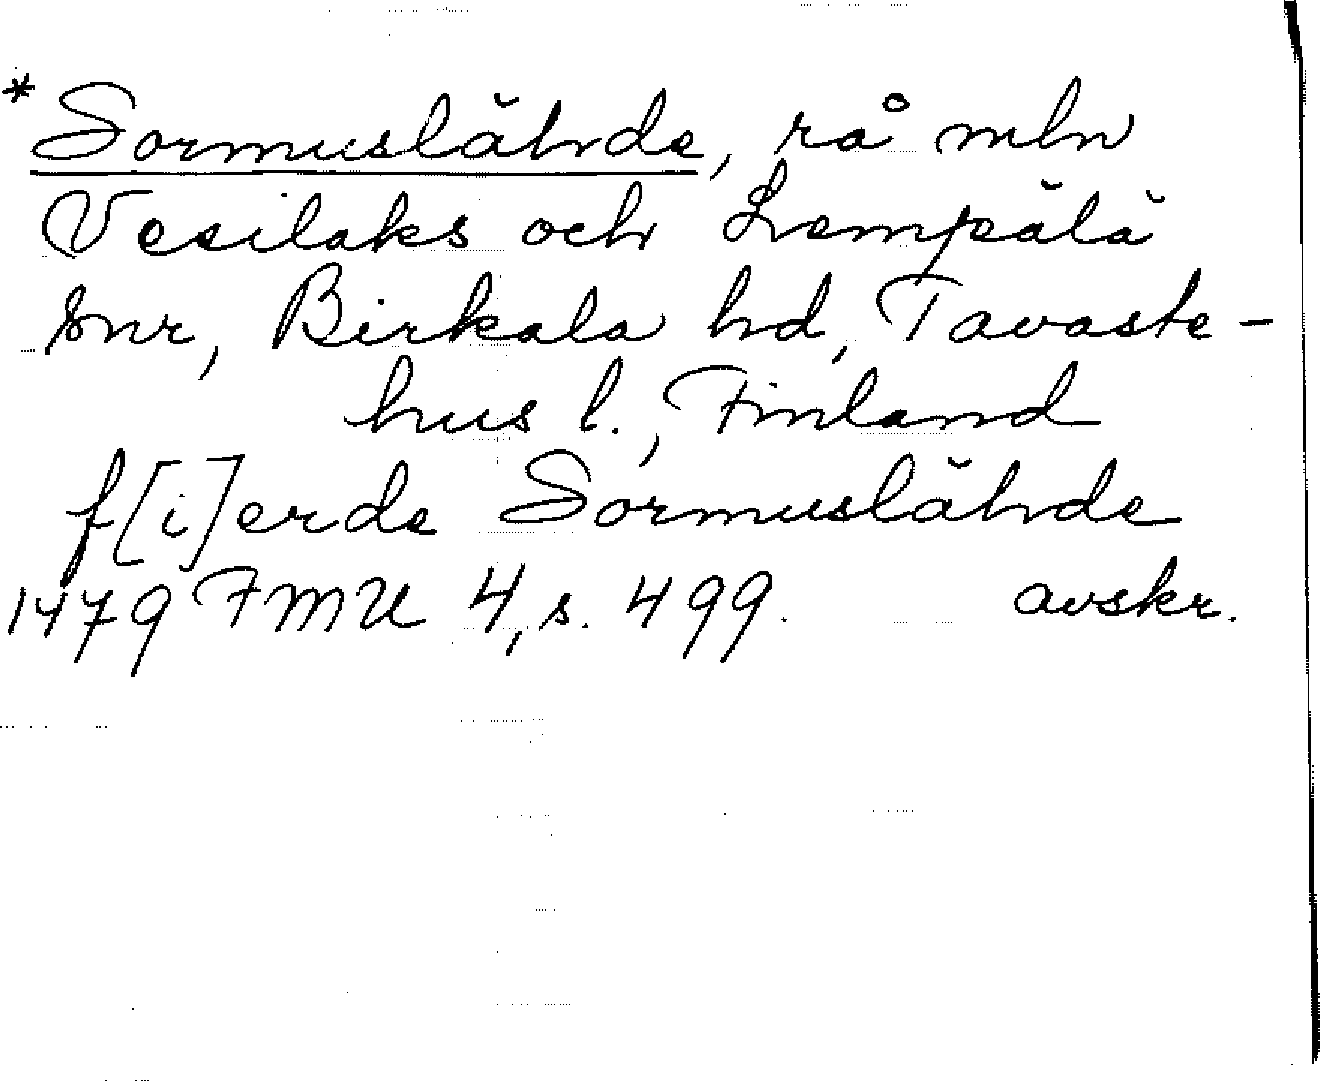 *Sormuslähde, rå mln
Vesilaks och Lempälä
snr, Birkala hd, Tavaste-
hus l., Finland
f[i]erde Sormuslähde
1479 FMU 4, s. 499. avskr.